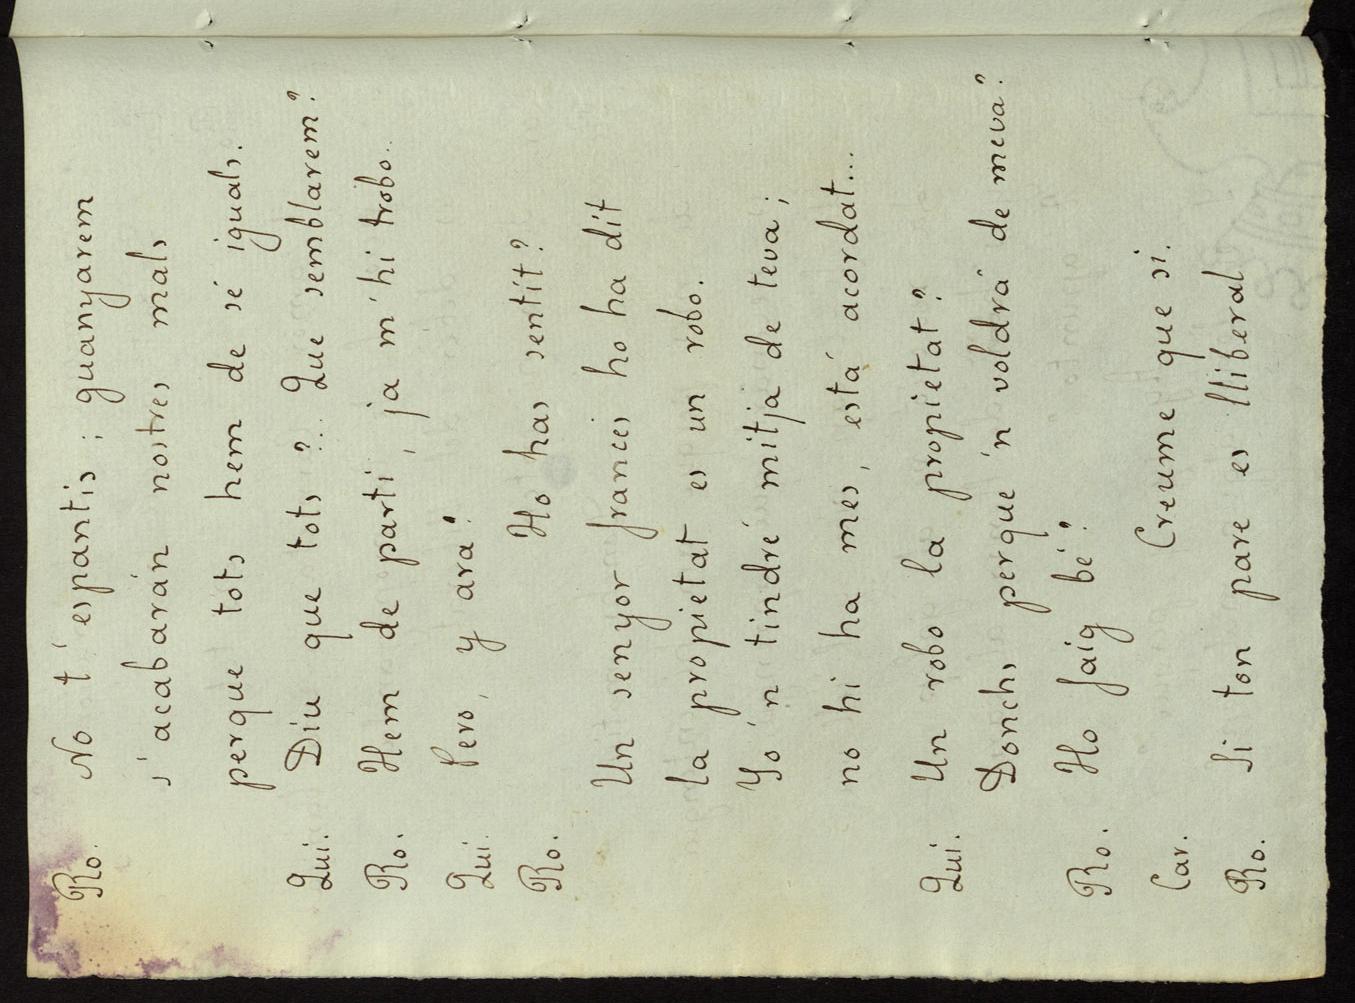 Ro. No t' espantis; guanyarem
s' acabarán nostres mals
perque tots hem de sé iguals.
Qui. Diu que tots?.. Que semblarem?
Ro. Hem de partí, ja m' hi trobo..
Qui. Pero, y ara!
Ro. Ho has sentit?
Un senyor francés ho ha dit
la propietat es un robo.
Yo 'n tindré mitja de teva;
no hi ha més, está acordat...
Qui. Un robo la propietat?
Donchs perque 'n voldrá de meva?
Ro. Ho faig bé?
Car. Creume que si.
Ro. Si ton pare es lliberal